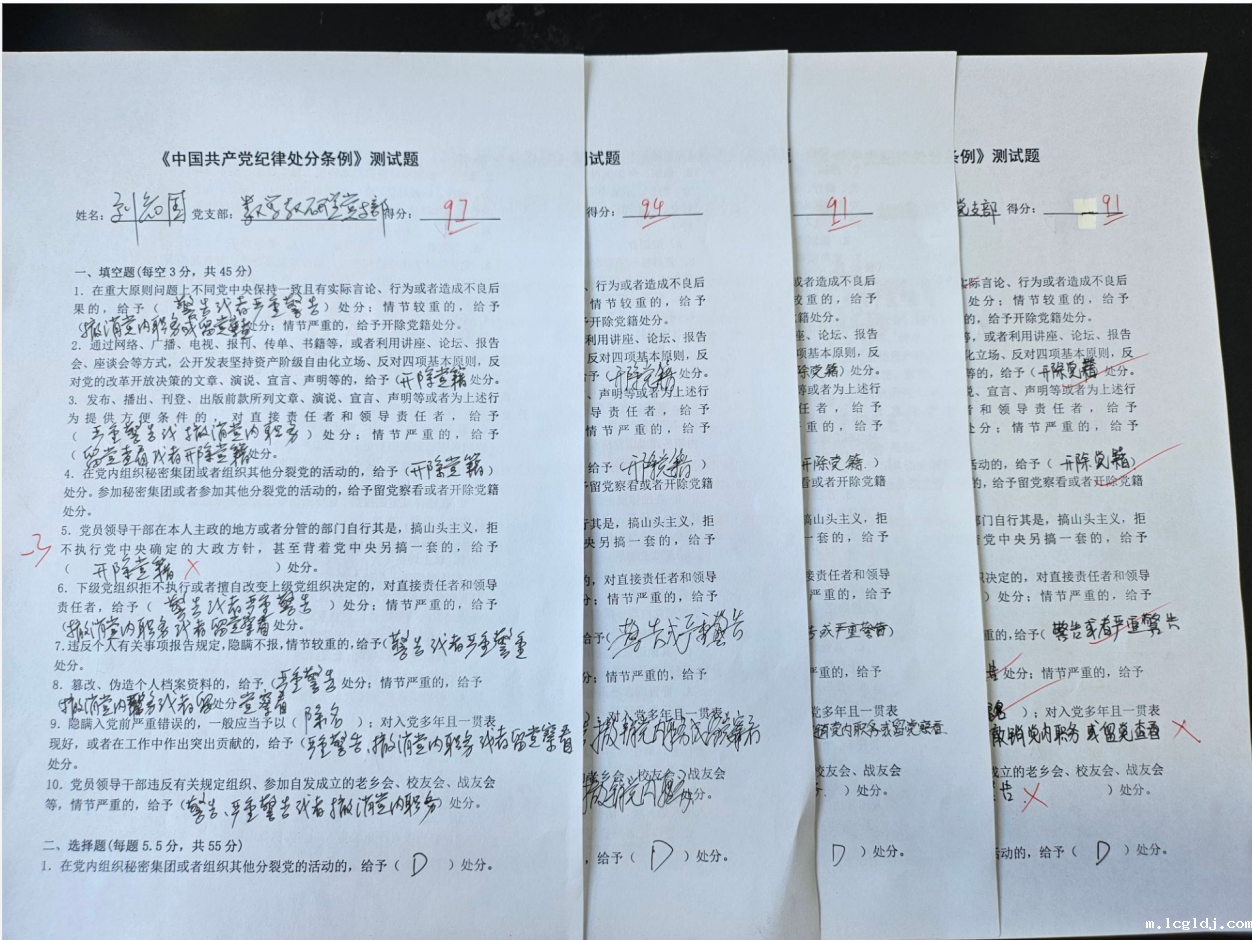 《中国共产党纪律处分条例》测试题
姓名： 党支部：数学教研室党支部 得分：97
一、填空题(每空 3 分，共 45 分)
1．在重大原则问题上不同党中央保持一致且有实际言论、行为或者造成不良后
果的，给予（警告或者严重警告）处分；情节较重的，给予
（撤消党内职务或留党察看处分；情节严重的，给予开除党籍处分。
2．通过网络、广播、电视、报刊、传单、书籍等，或者利用讲座、论坛、报告
会、座谈会等方式，公开发表坚持资产阶级自由化立场、反对四项基本原则，反
对党的改革开放决策的文章、演说、宣言、声明等的，给予（开除党籍处分。
3．发布、播出、刊登、出版前款所列文章、演说、宣言、声明等或者为上述行
为提供方便条件的，对直接责任者和领导责任者，给予
（严重警告或撤消党内职务）处分；情节严重的，给予
（留党查看或者开除党籍处分。
4．在党内组织秘密集团或者组织其他分裂党的活动的，给予（开除党籍）
处分。参加秘密集团或者参加其他分裂党的活动的，给予留党察看或者开除党籍
处分。
-3
5．党员领导干部在本人主政的地方或者分管的部门自行其是，搞山头主义，拒
不执行党中央确定的大政方针，甚至背着党中央另搞一套的，给予
（开除党籍 ）处分。
6．下级党组织拒不执行或者擅自改变上级党组织决定的，对直接责任者和领导
责任者，给予（警告或者严重警告）处分；情节严重的，给予
（撤消党内职务或者留党察看处分。
7.违反个人有关事项报告规定，隐瞒不报，情节较重的，给予（警告或者严重警告
处分。
8．篡改、伪造个人档案资料的，给予（严重警告处分；情节严重的，给予
（撤消党内职务或者留党察看处分
9．隐瞒入党前严重错误的，一般应当予以（除名）；对入党多年且一贯表
现好，或者在工作中作出突出贡献的，给予（严重警告、撤消党内职务或者留党察看
处分。
10．党员领导干部违反有关规定组织、参加自发成立的老乡会、校友会、战友会
等，情节严重的，给予（警告、严重警告或者撤消党内职务）处分。
二、选择题(每题 5.5 分，共 55 分)
1．在党内组织秘密集团或者组织其他分裂党的活动的，给予（D）处分。
试题
得分：94
、行为或者造成不良后
情节较重的，给予
开除党籍处分。
利用讲座、论坛、报告
反对四项基本原则，反
予（开除党籍处分。
、声明等或者为上述行
导责任者，给予
节严重的，给予
给予（开除党籍）
予留党察看或者开除党籍
其是，搞山头主义，拒
央另搞一套的，给予
的，对直接责任者和领导
；情节严重的，给予
给予（警告或严重警告
情节严重的，给予
对入党多年且一贯表
撤销党内职务或留党察看
乡会、校友会、战友会
撤销党内职务处分。
，给予（D）处分。
91
或者造成不良后
重的，给予
籍处分。
座、论坛、报告
四项基本原则，反
除党籍）处分。
等或者为上述行
任者，给予
重的，给予
开除党籍）
看或者开除党籍
搞山头主义，拒
一套的，给予
直接责任者和领导
严重的，给予
告或严重警告）
严重的，给予
党多年且一贯表
销党内职务或留党察看
校友会、战友会
）处分。
D）处分。
条例》测试题
党支部 得分：91
实际言论、行为或者造成不良后
处分；情节较重的，给予
的，给予开除党籍处分。
等，或者利用讲座、论坛、报告
化立场、反对四项基本原则，反
等的，给予（开除党籍处分。
说、宣言、声明等或者为上述行
者和领导责任者，给予
处分；情节严重的，给予
活动的，给予（开除党籍）
的，给予留党察看或者开除党籍
部门自行其是，搞山头主义，拒
背着党中央另搞一套的，给予
织决定的，对直接责任者和领导
分；情节严重的，给予
重的,给予（警告或者严重警告
告 处分；情节严重的，给予
名）；对入党多年且一贯表
撤销党内职务或留党查看
成立的老乡会、校友会、战友会
告 ）处分。
活动的，给予（D）处分。
m.lcgldj.com